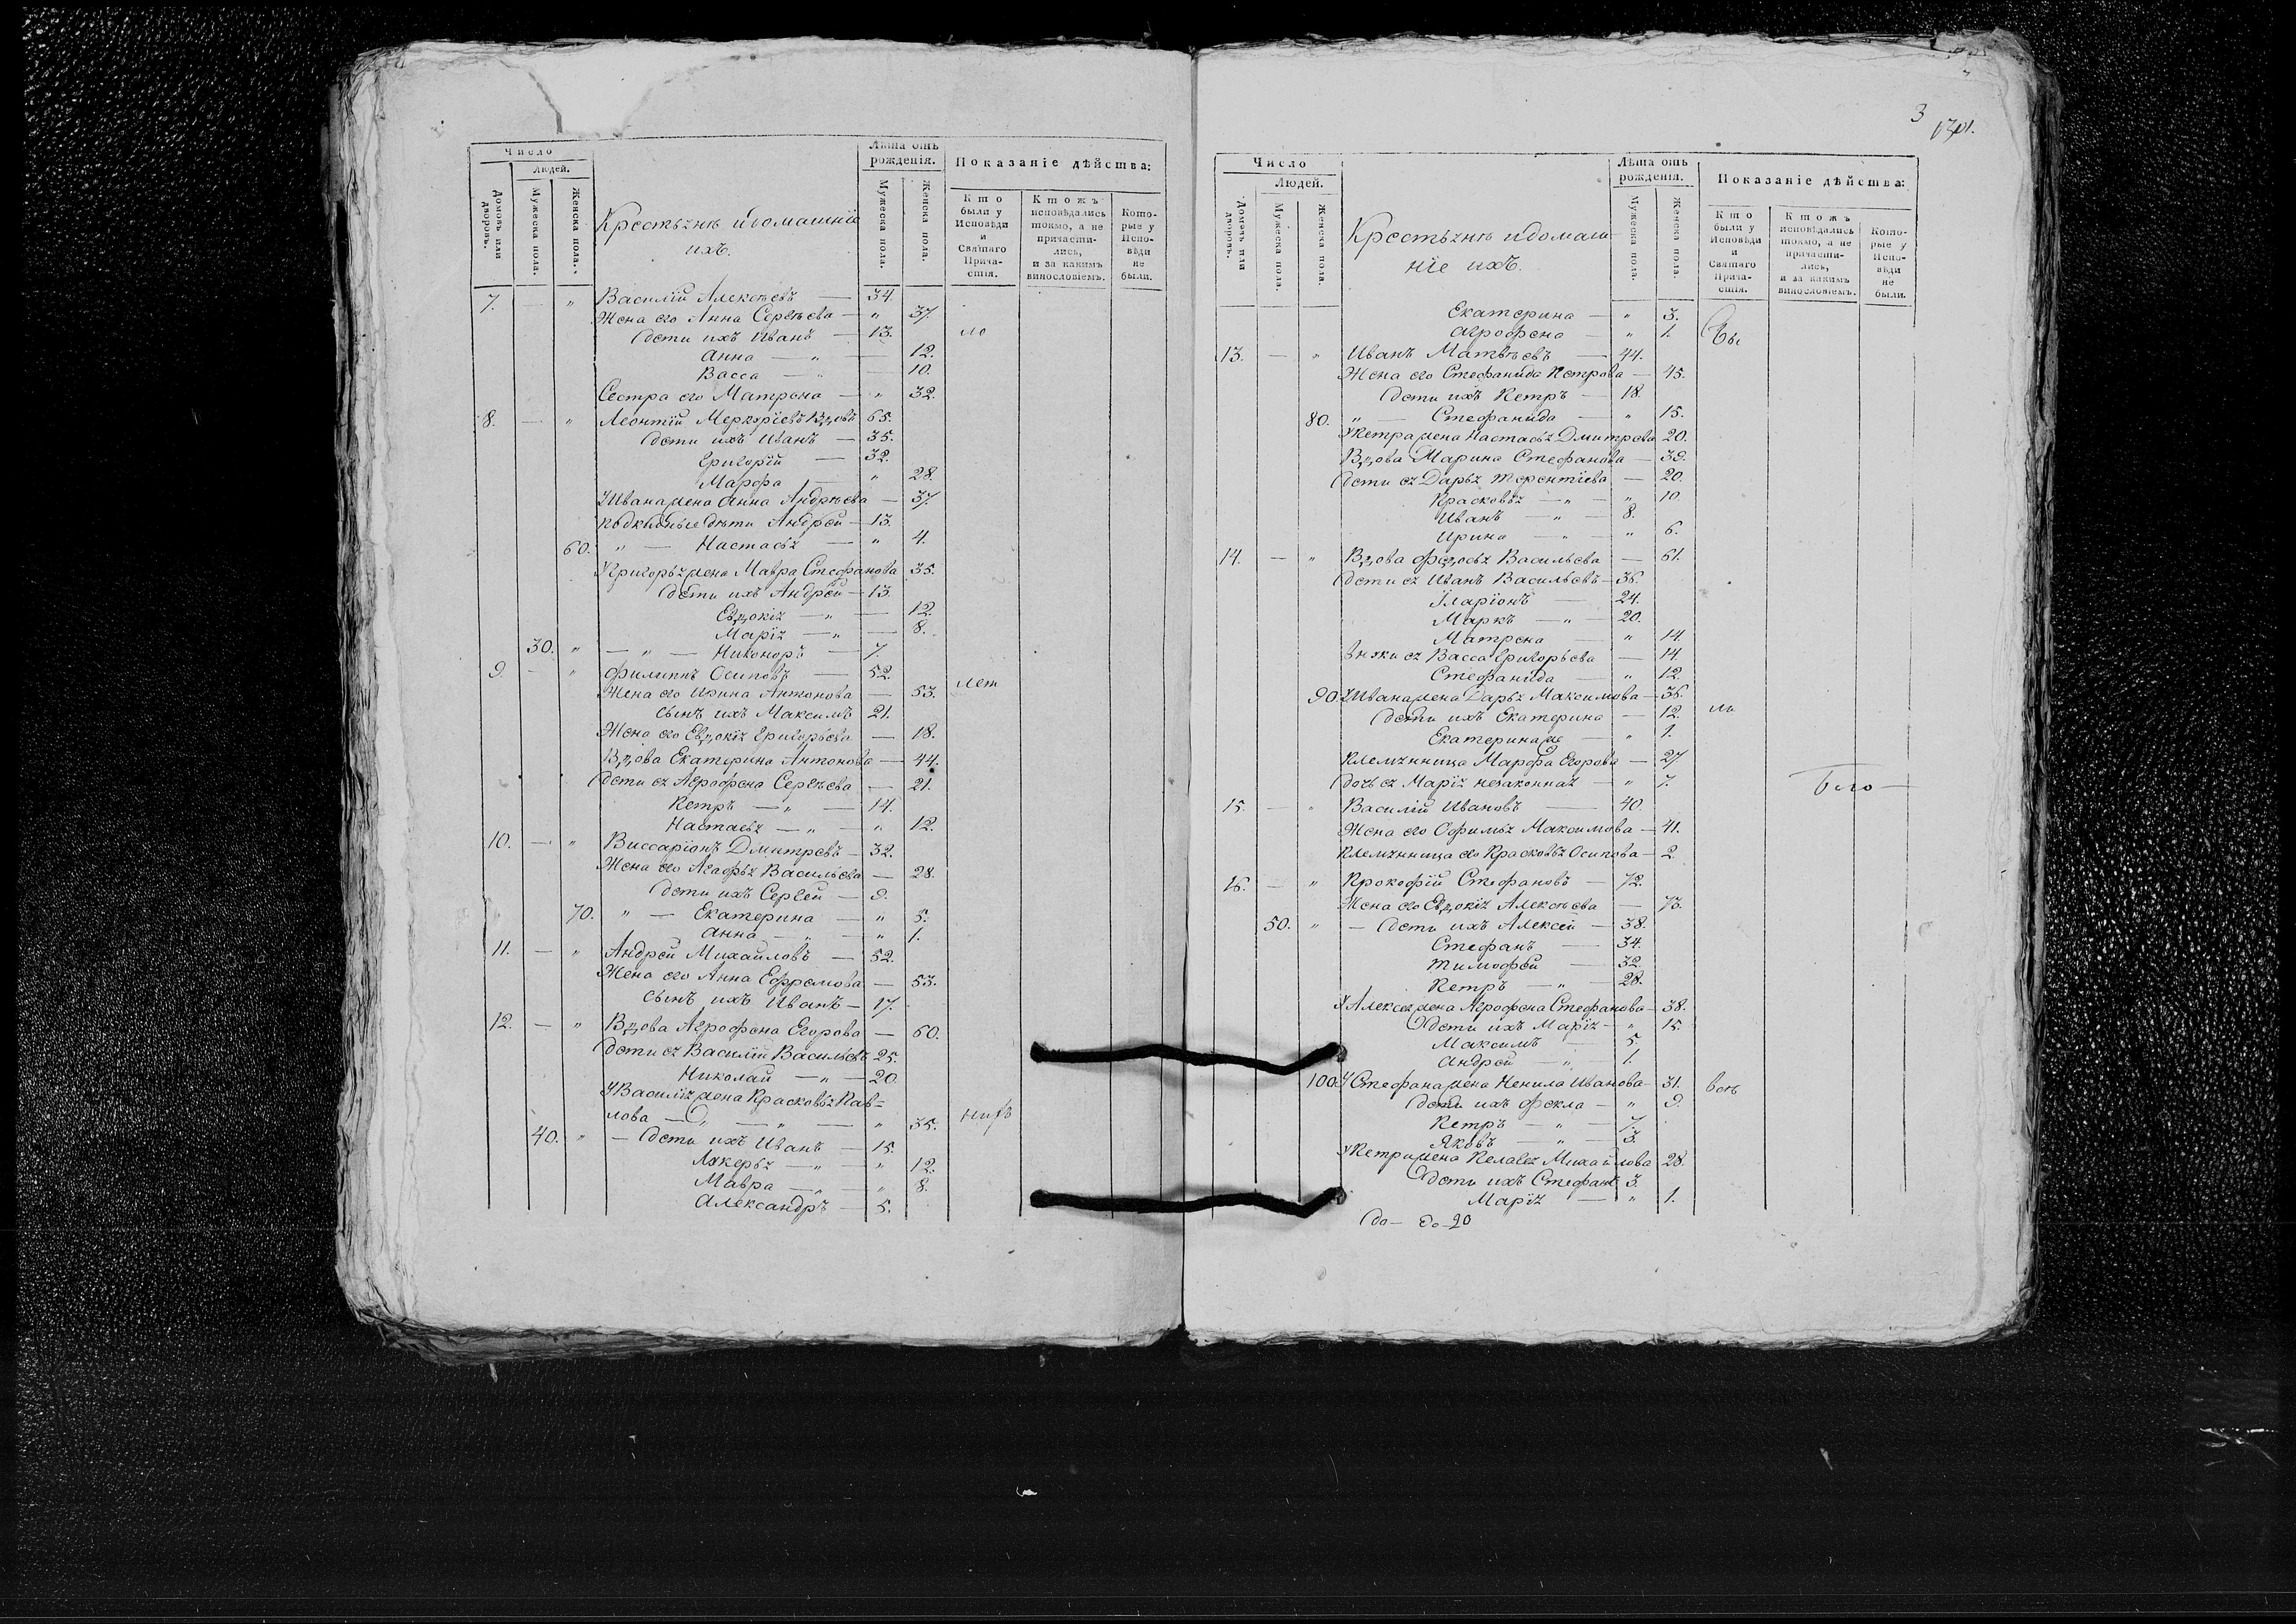 Число
Людей.
Домовъ или дворовъ.
Мужеска пола.
Женска пола.
Крестьянѣ и домашнія
ихъ.
Лѣта отъ рожденія.
Мужеска пола.
Женска пола.
Показаніе дѣйства:
Кто были у Исповѣди и Святаго Прича-стія.
Ктожъ исповѣдались токмо, а не причасти-лись, и за какимъ винословіемъ.
Кото-рые у Испо-вѣди не были.
7. — " Василій Алексѣевъ — 34.
Жена его Анна Сергѣева — " 37.
Дети ихъ Иванъ — 13.
Анна — " — 12.
Васса — " — 10.
Сестра его Матрена — " 32.
8. — " Леонтій Меркоріевъ вдовъ 65.
Дети ихъ Иванъ — 35.
Григорій — 32.
Марфа — " 28.
У Ивана жена Анна Андрѣева — 37.
Подкидные дѣти Андрей — 13.
60. " — Настасья — " 4.
У Григорья жена Мавра Стефанова 35.
Дети ихъ Андрей — 13.
Евдокія — " — 12.
Марія — " — 8.
30. " — " — Никоноръ — 7.
9. — " Филиппъ Осиповъ — 52.
Жена его Ирина Антонова — 53.
Сынъ ихъ Максимъ 21.
Жена его Евдокія Григорьева — 18.
Вдова Екатерина Антонова — 44.
Дети ея Агрофена Сергѣева — 21.
Петръ — " — 14.
Настасья — " — " 12.
10. — " Виссаріонъ Дмитревъ — 32.
Жена его Агафья Васильева — 28.
Дети ихъ Сергей — 9.
70. " — Екатерина — " 5.
Анна — " — " 1.
11. — " Андрей Михайловъ — 52.
Жена его Анна Ефремова — 53.
Сынъ ихъ Иванъ — 17.
12. — " Вдова Агрофена Егорова — 60.
Дети ея Василій Васильевъ 25.
Николай — " — 20.
У Василія жена Прасковья Пав-
лова — " — " — " 35.
40. " — Дети ихъ Иванъ — 15.
Лукерья — " — " 12.
Мавра — " " 8.
Александръ — 5.
3
Число
Людей.
Домовъ или дворовъ.
Мужеска пола.
Женска пола.
Крестьянѣ и домаш-
ніе ихъ.
Лѣта отъ рожденія.
Мужеска пола.
Женска пола.
Показаніе дѣйства:
Кто были у Исповѣди и Святаго Прича-стія.
Ктожъ исповѣдались токмо, а не причасти-лись, и за какимъ винословіемъ.
Кото-рые у Испо-вѣди не были.
Екатерина — " 3.
Агрофена — " 1.
13. — " Иванъ Матвѣевъ — 44.
Жена его Стефанида Петрова — 45.
Дети ихъ Петръ — 18.
80. " — Стефанида — " 15.
У Петра жена Настасья Дмитрева 20.
Вдова Марина Стефанова — 39.
Дети ея Дарья Терентіева — 20.
Прасковья — " — " 10
Иванъ — " — 8.
Ирина — " — " 6.
14. — " Вдова Федосья Васильева — 61.
Дети ея Иванъ Васильевъ — 36.
Іларіонъ — 24.
Маркъ — " — 20.
Матрена — " 14.
Внуки ея Васса Григорьева — 14.
Стефанида — " 12.
90 У Ивана жена Дарья Максимова — 36.
Дети ихъ Екатерина — 12.
Екатерина же — " 1.
Племянница Марфа Егорова — 27
Дочь ея Марія незаконная — " 7.
15. — " Василій Ивановъ — 40.
Жена его Офимья Максимова — 41.
Племянница его Прасковья Осипова — 2
16. — " Прокофій Стефановъ — 72.
Жена его Евдокія Алексѣева — 73.
50. " — Дети ихъ Алексей — 38.
Стефанъ — 34.
Тимофей — 32.
Петръ — " — 28.
У Алексея жена Агрофена Стефанова — 38.
Дети ихъ Марія — " 15.
Максимъ — 5.
Андрей — " — 1.
100. У Стефана жена Ненила Иванова — 31.
Дети ихъ Фекла — " 9.
Петръ — " — 7.
Яковъ — " — 3.
У Петра жена Пелагея Михайлова 28.
Дети ихъ Стефанъ 3.
Марія — " 1.